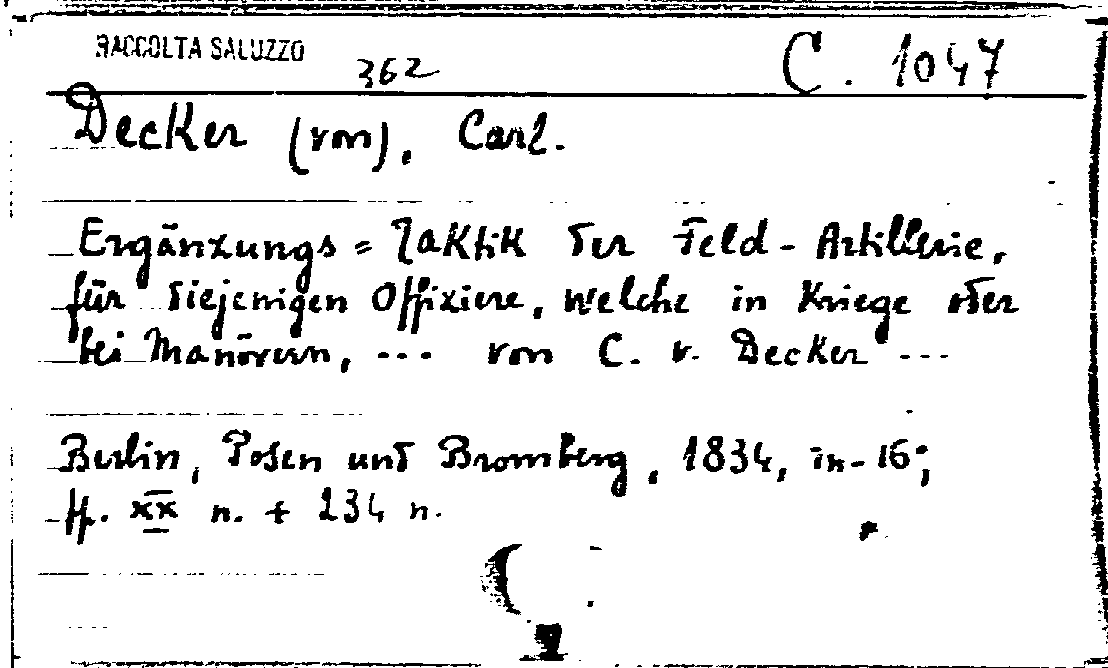 RACCOLTA SALUZZO
362 C. 1047
Decker (von), Carl.
Ergänzungs = Taktik der Feld - Artillerie,
für diejenigen Offiziere, welche in Kriege oder
bei Manövern, ... von C. v. Decker ...
Berlin, Posen und Bromberg, 1834, in-16°;
ff. XX n. + 234 n.